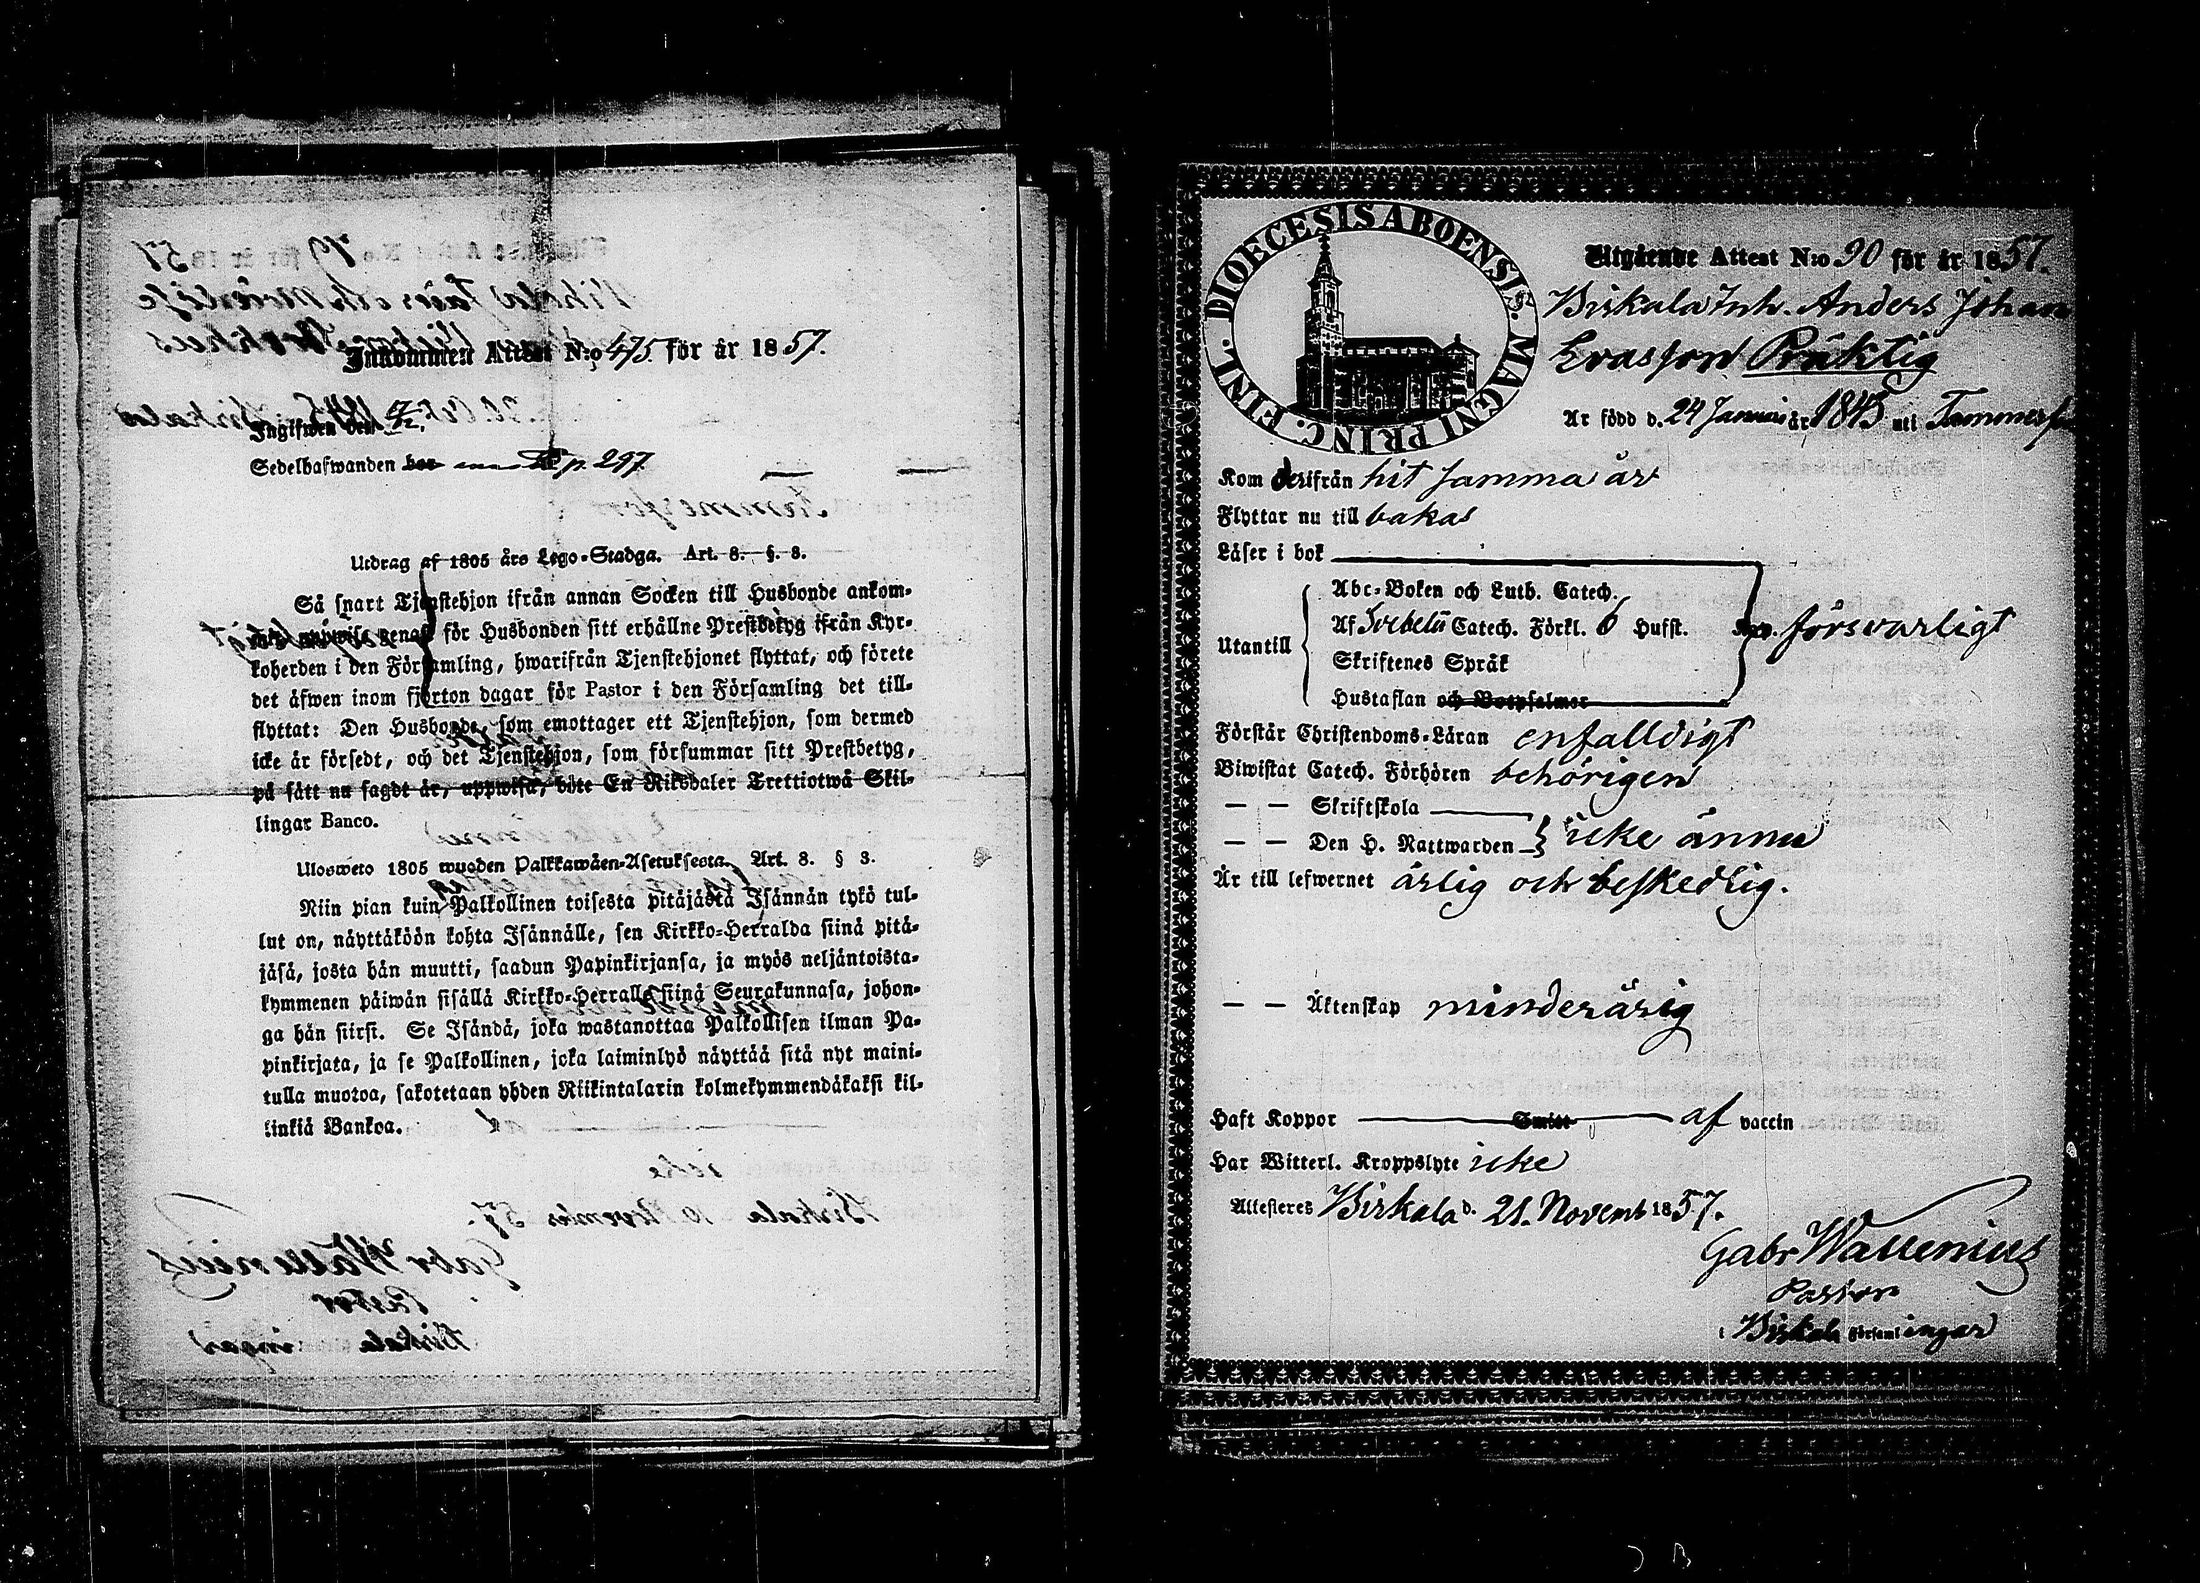 Inkommen Attest N:o 475 för år 1857.
Ingifwen den
Sedelhafwanden p. 297.
Utdrag af 1805 års Lego-Stadga. Art. 8. §. 8.
Så snart Tjenstehjon ifrån annan Socken till Husbonde ankom-
för Husbonden sitt erhållne Prestbetyg ifrån Kyr-
koherden i den Församling, hwarifrån Tjenstehjonet flyttat, och förete
det äfwen inom fjorton dagar för Pastor i den Församling det till-
flyttat: Den Husbonde, som emottager ett Tjenstehjon, som dermed
icke är försedt, och det Tjenstehjon, som försummar sitt Prestbetyg,
på sätt nu sagdt är, uppwisa, böte En Riksdaler Trettiotwå Skil-
lingar Banco.
Ulosweto 1805 wuoden Palkkawäen-Asetuksesta. Art. 8. § 8.
Niin pian kuin Palkollinen toisesta pitäjästä Isännän tykö tul-
lut on, näyttäköön kohta Isännälle, sen Kirkko-Herralda siinä pitä-
jäsä, josta hän muutti, saadun Papinkirjansa, ja myös neljäntoista-
kymmenen päiwän sisällä Kirkko-Herralle siinä Seurakunnasa, johon-
ga hän siirsi. Se Isändä, joka wastanottaa Palkollisen ilman Pa-
pinkirjata, ja se Palkollinen, joka laiminlyö näyttää sitä nyt maini-
tulla muotoa, sakotetaan yhden Riikintalarin kolmekymmendäkaksi kil-
linkiä Bankoa.
DIOECESIS ABOENSIS. MAGNI PRINC. FINL.
Utgående Attest N:o 90 för år 1857.
Birkala Inh. Anders Johan
Evasson Präktig
Är född d. 24 Januari år 1845 uti
Kom derifrån hit samma år
Flyttar nu till bakas
Läser i bok
Abc-Boken och Luth. Catech.
Utantill Af Svebelii Catech. Förkl. 6 Hufst. försvarligt
Skriftenes Språk
Hustaflan och Botpsalmer
Förstår Christendoms-Läran enfalldigt
Biwistat Catech. Förhören behörigen
— — Skriftskola
— — Den H. Nattwarden icke ännu
Är till lefwernet ärlig och beskedlig.
— — Äktenskap minderårig
Haft Koppor Smitt af vaccin
Har Witterl. Kroppslyte icke
Attesteres Birkala d. 21. Novemb 1857.
Gabr Wallenius
Pastor
i Birkala Församlingar